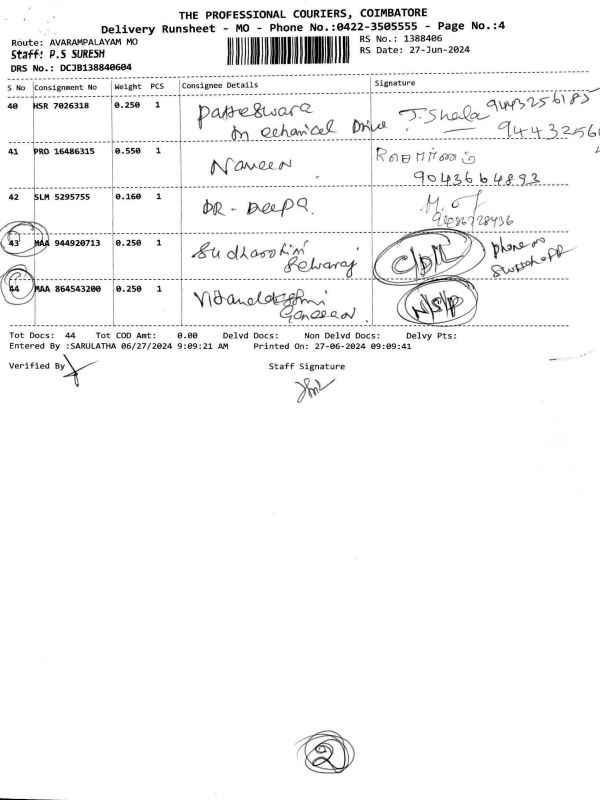 THE PROFESSIONAL COURIERS, COIMBATORE
Delivery Runsheet - MO - Phone No.:0422-3505555 - Page No.:4
Route: AVARAMPALAYAM MO
RS No.: 1388406
Staff: P.S SURESH
RS Date: 27-Jun-2024
DRS No.: DCJB138840604
S No Consignment No Weight PCS Consignee Details Signature
40 HSR 7026318 0.250 1 Patteswara J. Shela 9443256185
Mechanical Drive
41 PRO 16486315 0.550 1 Naveen
9043664893
42 SLM 5295755 0.160 1 DR - Deepa.
43 MAA 944920713 0.250 1 Sudharshini Selvaraj C/D/L phone no
44 MAA 864543200 0.250 1 Ganesan N/S/P
Tot Docs: 44 Tot COD Amt: 0.00 Delvd Docs: Non Delvd Docs: Delvy Pts:
Entered By :SARULATHA 06/27/2024 9:09:21 AM Printed On: 27-06-2024 09:09:41
Verified By Staff Signature
2